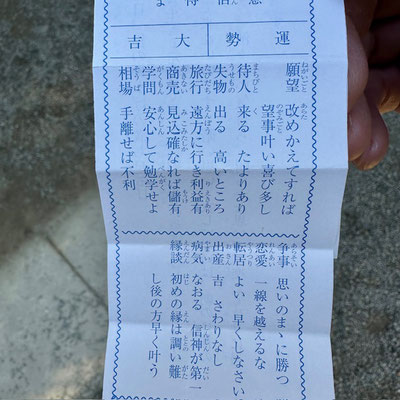 運勢 大吉
願望 改めかえてすれば
望事叶い喜び多し
待人 来る たよりあり
失物 出る 高いところ
旅行 遠方に行き利益有
商売 見込確なれば儲有
学問 安心して勉学せよ
相場 手離せば不利
争事 思いのまゝに勝つ
恋愛 一線を越えるな
転居 よい 早くしなさい
出産 吉 さわりなし
病気 なおる 信神が第一
縁談 初めの縁は調い難
し後の方早く叶う